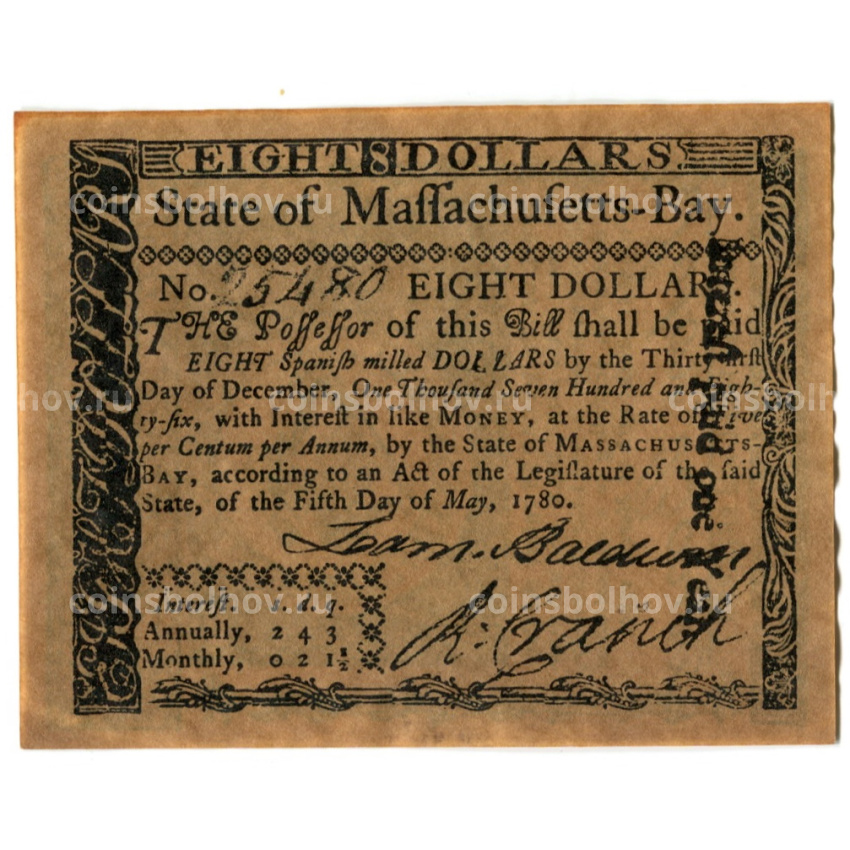 EIGHT 8 DOLLARS
State of Maſſachuſetts-Bay.
No. 25480 EIGHT DOLLARS.
THE Poſſeſſor of this Bill ſhall be paid
EIGHT Spaniſh milled DOLLARS by the Thirty-firſt
Day of December, One Thouſand Seven Hundred and Eigh-
ty-ſix, with Intereſt in like MONEY, at the Rate of Five
per Centum per Annum, by the State of MASSACHUSETTS-
BAY, according to an Act of the Legiſlature of the ſaid
State, of the Fifth Day of May, 1780.
Loam. Baldwin
R: Cranch
Intereſt. s. d. q.
Annually, 2 4 3
Monthly, 0 2 1 1/2
coinsbolhov.ru coinsbolhov.ru
lhov.ru coinsbolhov.ru coinsbolh
coinsbolhov.ru coinsbolhov.ru